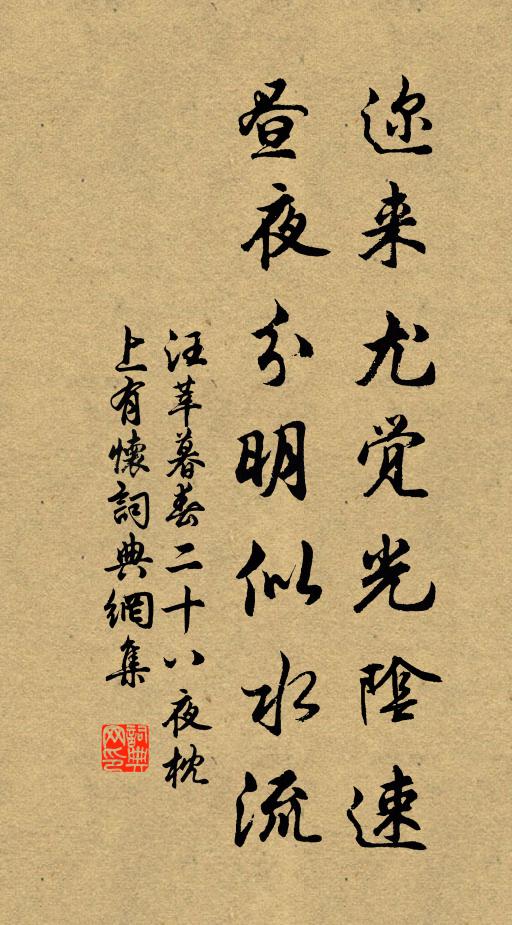 迩来尤觉光陰速
昼夜分明似水流
汪莘暮春二十八夜枕
上有懷詞典網集
詞典网印